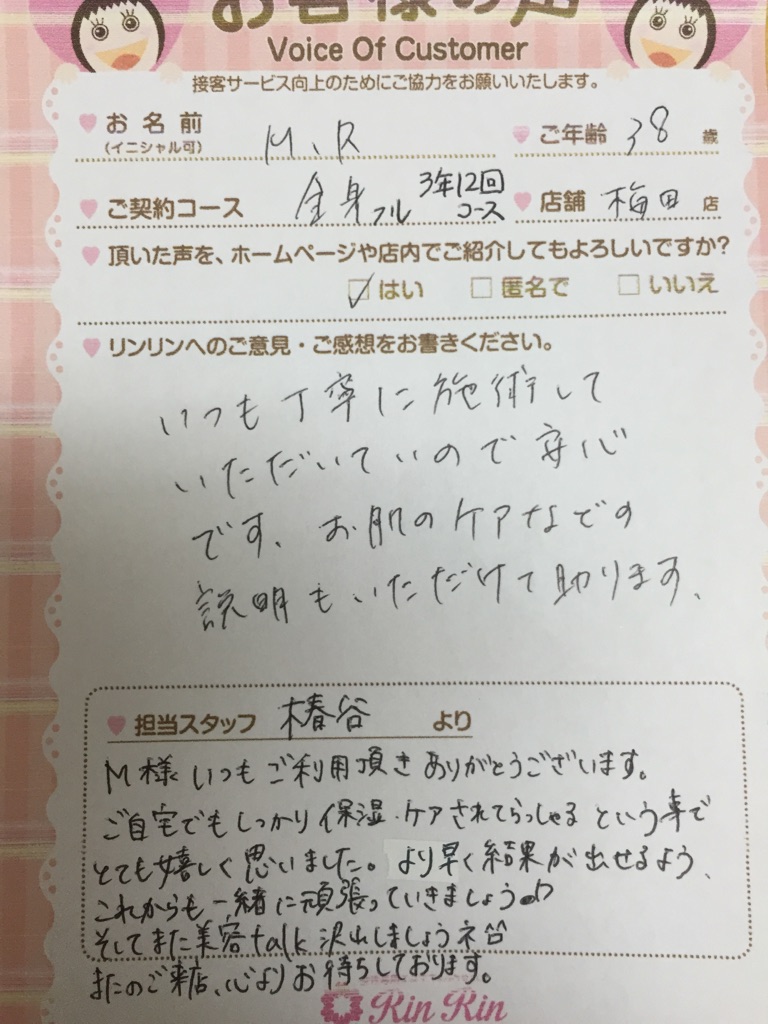 お客様の声
Voice Of Customer
接客サービス向上のためにご協力をお願いいたします。
お名前 M.R ご年齢 38 歳
(イニシャル可)
ご契約コース 全身フル 3年12回コース 店舗 梅田 店
頂いた声を、ホームページや店内でご紹介してもよろしいですか?
はい 匿名で いいえ
リンリンへのご意見・ご感想をお書きください。
いつも丁寧に施術して
いただいていので安心
です、お肌のケアなどの
説明もいただけて助ります、
担当スタッフ 椿谷 より
M様いつもご利用頂きありがとうございます。
ご自宅でもしっかり保湿・ケアされてらっしゃるという事で
とても嬉しく思いました。より早く結果が出せるよう、
これからも一緒に頑張っていきましょう♪
そしてまた美容talk沢山しましょうネ
またのご来店、心よりお待ちしております。
Rin Rin